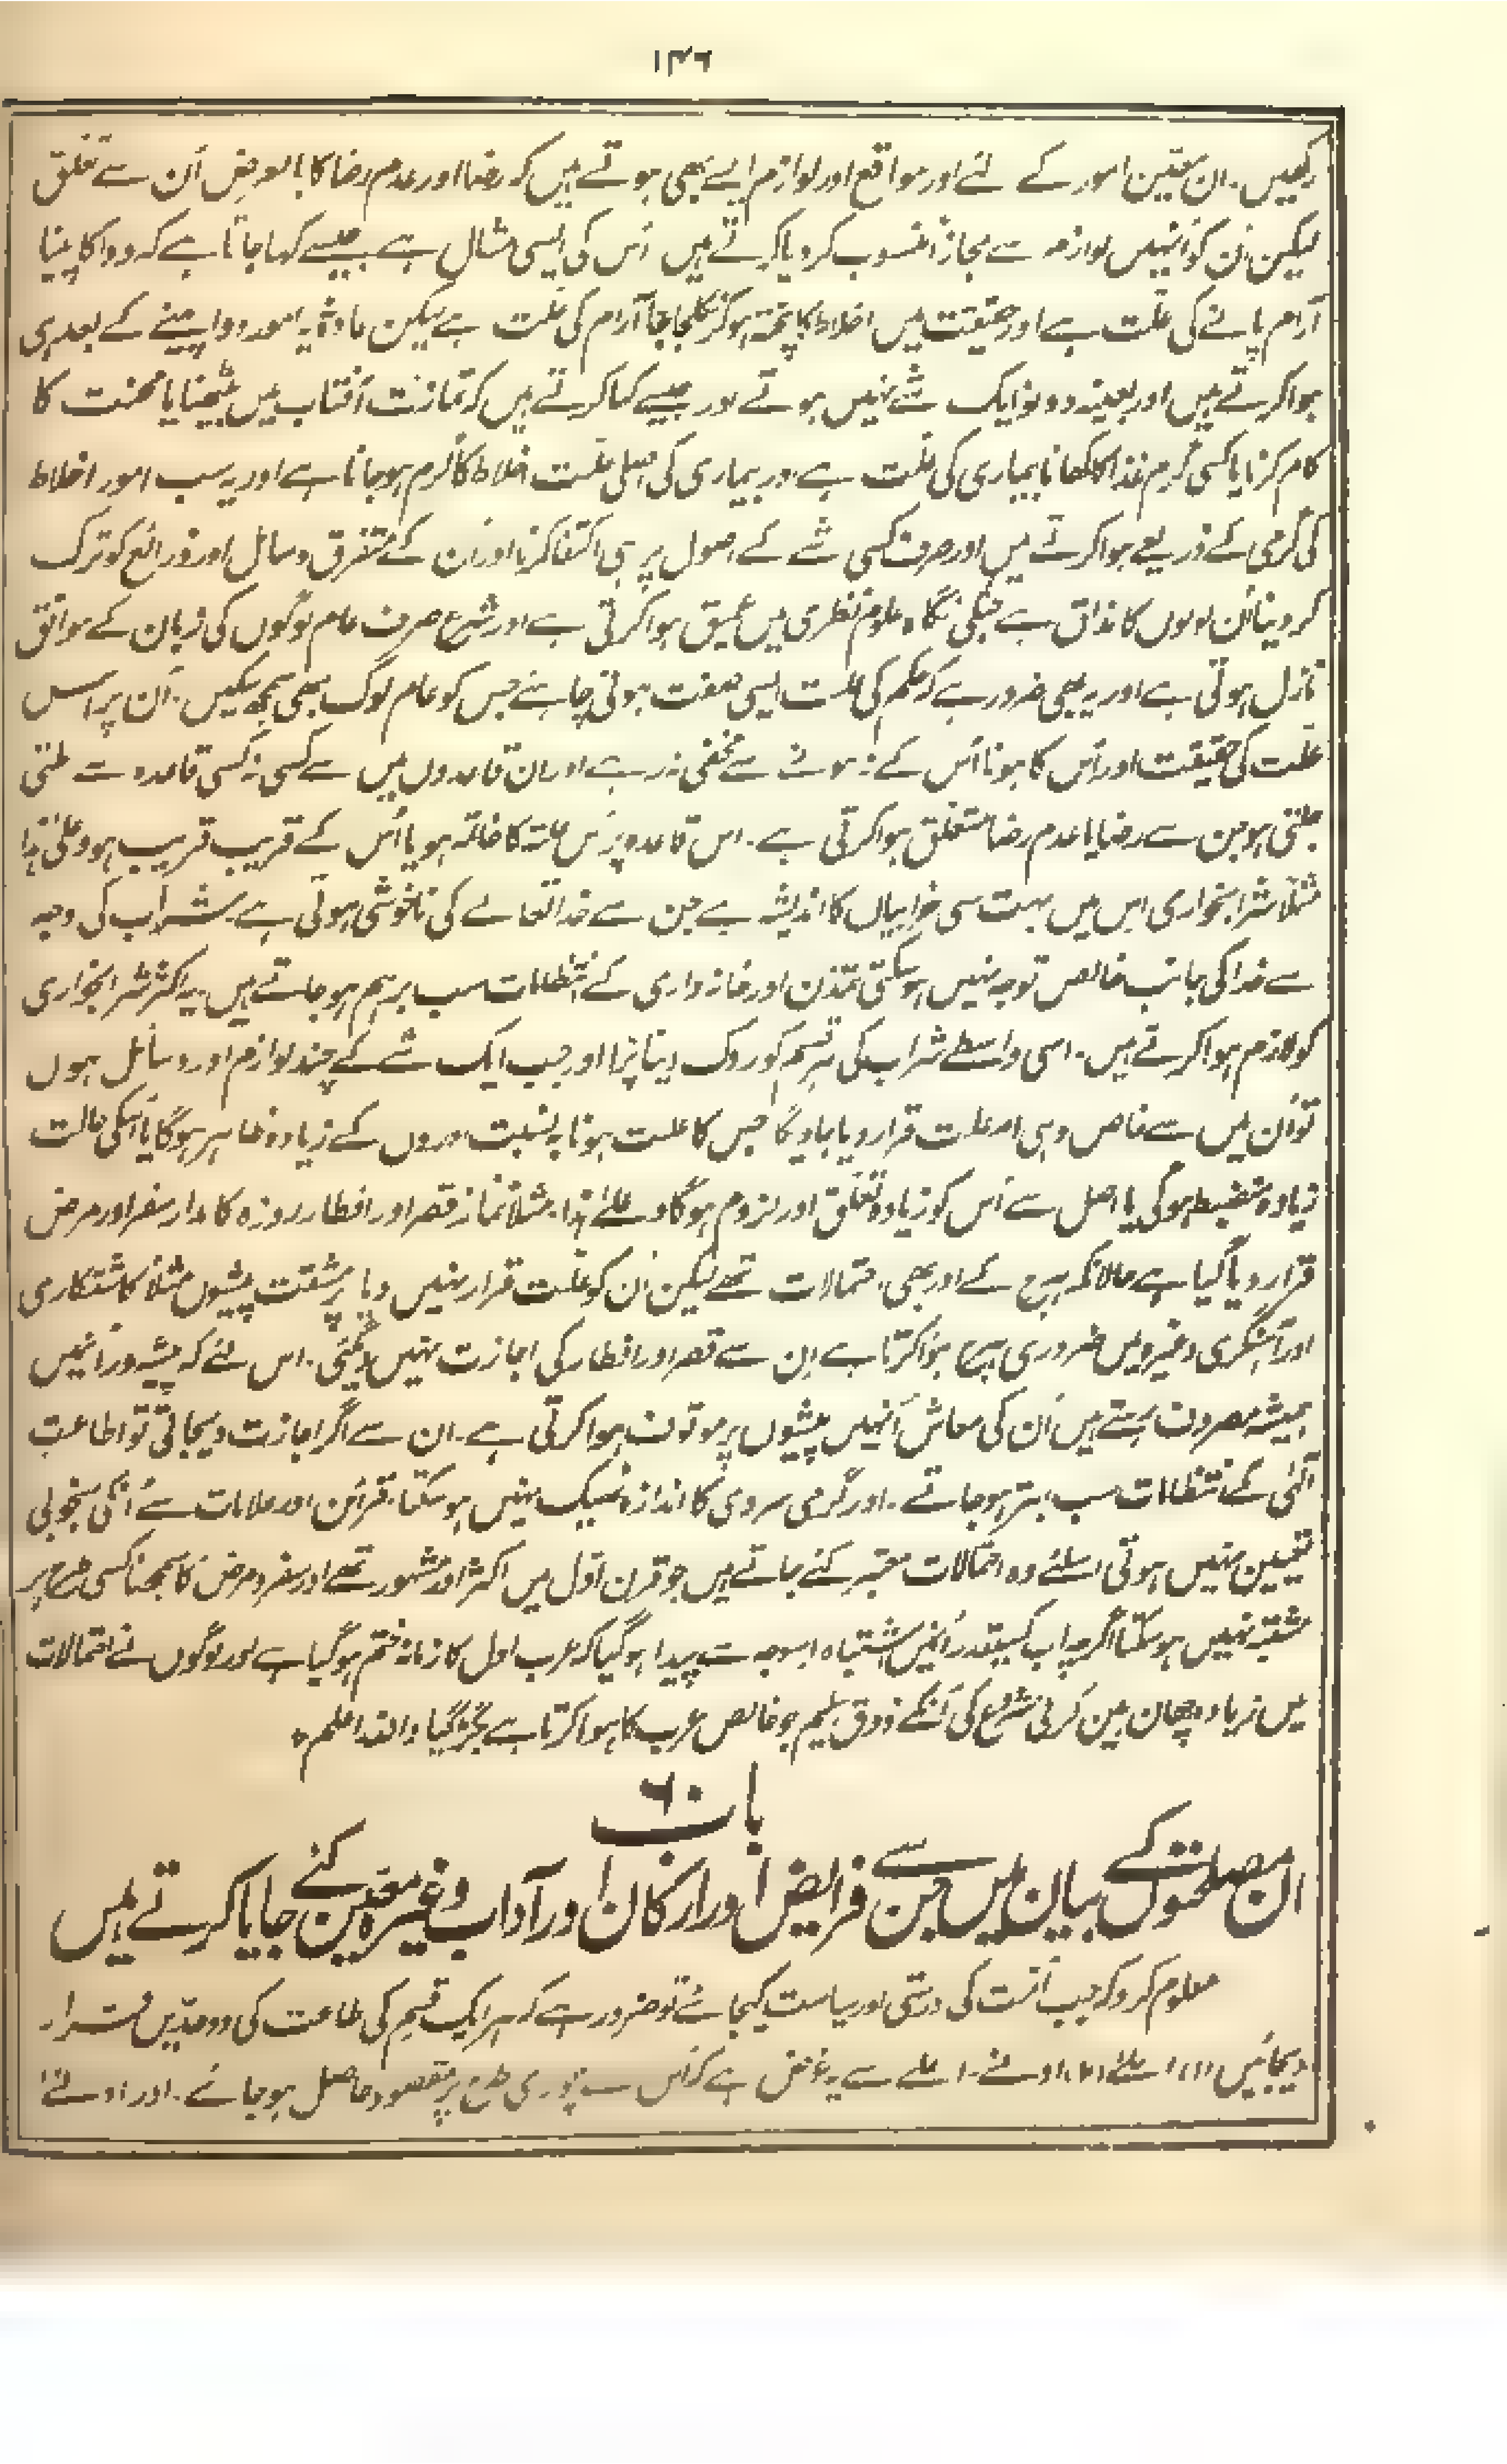 ۱۴۶
رکھیں۔ ان معین امور کے لئے اور مواقع اور لوازم ایسے بھی ہوتے ہیں کہ رضا اور عدم رضا کا بالعوض اُن سے تعلق
لیکن اُن کو اُنہیں لوازم سے مجازاً منسوب کر دیا کرتے ہیں اُس کی ایسی مثال ہے جیسے کہا جاتا ہے کہ دوا کا پینا
آرام پانے کی علّت ہے اور حقیقت میں اخلاط کا پختہ ہوکر نکلجانا آرام کی علّت ہے لیکن عادۃً یہ امور دوا پینے کے بعد ہی
ہوا کرتے ہیں اور بعینہ دونو ایک شے نہیں ہوتے اور جیسے کہا کرتے ہیں کہ تمازت آفتاب میں بیٹھنا یا محنت کا
کام کرنا یا کسی گرم غذا کا کھانا بیماری کی علّت ہے اور بیماری کی اصلی علّت اخلاط کا گرم ہوجانا ہے اور یہ سب امور اخلاط
کی گرمی کے ذریعے ہوا کرتے ہیں اور صرف کسی شے کے اصول پر ہی اکتفا کرنا اور اُن کے متفرق وسائل اور ذرائع کو ترک
کر دینا اُن لوگوں کا مذاق ہے جنکی نگاہ علوم نظری میں عمیق ہوا کرتی ہے اور شرع صرف عام لوگوں کی زبان کے موافق
نازل ہوتی ہے اور یہ بھی ضرور ہے کہ حکم کی علّت ایسی صفت ہونی چاہئے جس کو عام لوگ بھی سمجھ سکیں۔ اُن پر اس
علّت کی حقیقت اور اُس کا ہونا اُس کے نہ ہونے سے مخفی نہ رہے اور ان قاعدوں میں سے کسی نہ کسی قاعدہ سے ملتی
جلتی ہو جن سے رضا یا عدم رضا متعلق ہوا کرتی ہے۔ اس قاعدہ پر اُس علّت کا خاتمہ ہو یا اُس کے قریب قریب ہو وعلیٰ ہذا
مثلاً شرابخواری اس میں بہت سی خرابیاں کا اندیشہ ہے جن سے خدا تعالےٰ کی ناخوشی ہوتی ہے شراب کی وجہ
سے خدا کی جانب خالص توجہ نہیں ہوسکتی تمدّن اور خانہ داری کے انتظامات سب برہم ہوجاتے ہیں یہ اکثر شرابخواری
کو لازم ہوا کرتے ہیں۔ اسی واسطے شراب کی ہر قسم کو روک دینا پڑا اور جب ایک شے کے چند لوازم اور وسائل ہوں
تو اُن میں سے خاص وہی امر علت قرار دیا جاویگا جس کا علت ہونا بہ نسبت اوروں کے زیادہ ظاہر ہوگا یا اُسکی حالت
زیادہ منضبط ہوگی یا اصل سے اُس کو زیادہ تعلّق اور لزوم ہوگا وعلیٰ ہذا۔ مثلاً نماز قصر اور افطار روزہ کا مدار سفر اور مرض
قرار دیا گیا ہے حالانکہ حرج کے اور بھی احتمالات تھے لیکن اُن کو علّت قرار نہیں دیا پُر مشقت پیشوں مثلاً کاشتکاری
اور آہنگری وغیرہ میں ضروری حرج ہوا کرتا ہے اِن سے قصر اور افطار کی اجازت نہیں دیگئی۔ اس لئے کہ پیشہ ور اُنہیں
ہمیشہ مصروف رہتے ہیں اُن کی معاش اُنہیں پیشوں پر موقوف ہوا کرتی ہے۔ ان سے اگر اجازت دیجاتی تو اطاعت
الٰہی کے انتظامات سب ابتر ہوجاتے۔ اور گرمی سردی کا اندازہ ٹھیک نہیں ہوسکتا۔ قرائن اور علامات سے اُنکی بخوبی
تعیین نہیں ہوتی اسلئے وہ احتمالات معتبر کئے جاتے ہیں جو قرن اوّل میں اکثر اور مشہور تھے اور سفر و مرض کا سمجھنا کسی طرح پر
مشتبہ نہیں ہوسکتا اگرچہ اب کسیقدر اُنمیں اشتباہ اسوجہ سے پیدا ہوگیا کہ عرب اول کا زمانہ ختم ہوگیا ہے اور لوگوں نے احتمالات
میں زیادہ چھان بین کرنی شروع کی اُنکے ذوق سلیم جو خالص عرب کا ہوا کرتا ہے بگڑ گیا واللہ اعلم۔
باب ۶۰
ان مصلحتوں کے بیان میں جن سے فرایض اور ارکان اور آداب وغیرہ معین کئے جایا کرتے ہیں
معلوم کرو کہ جب اُمّت کی درستی اور سیاست کیجائے تو ضرور ہے کہ ہر ایک قسم کی طاعت کی دو حدّیں قرار
دیجائیں (۱) اعلےٰ (۲) ادنےٰ۔ اعلےٰ سے یہ غرض ہے کہ اُس سے پوری طرح پر مقصود حاصل ہوجائے۔ اور ادنےٰ